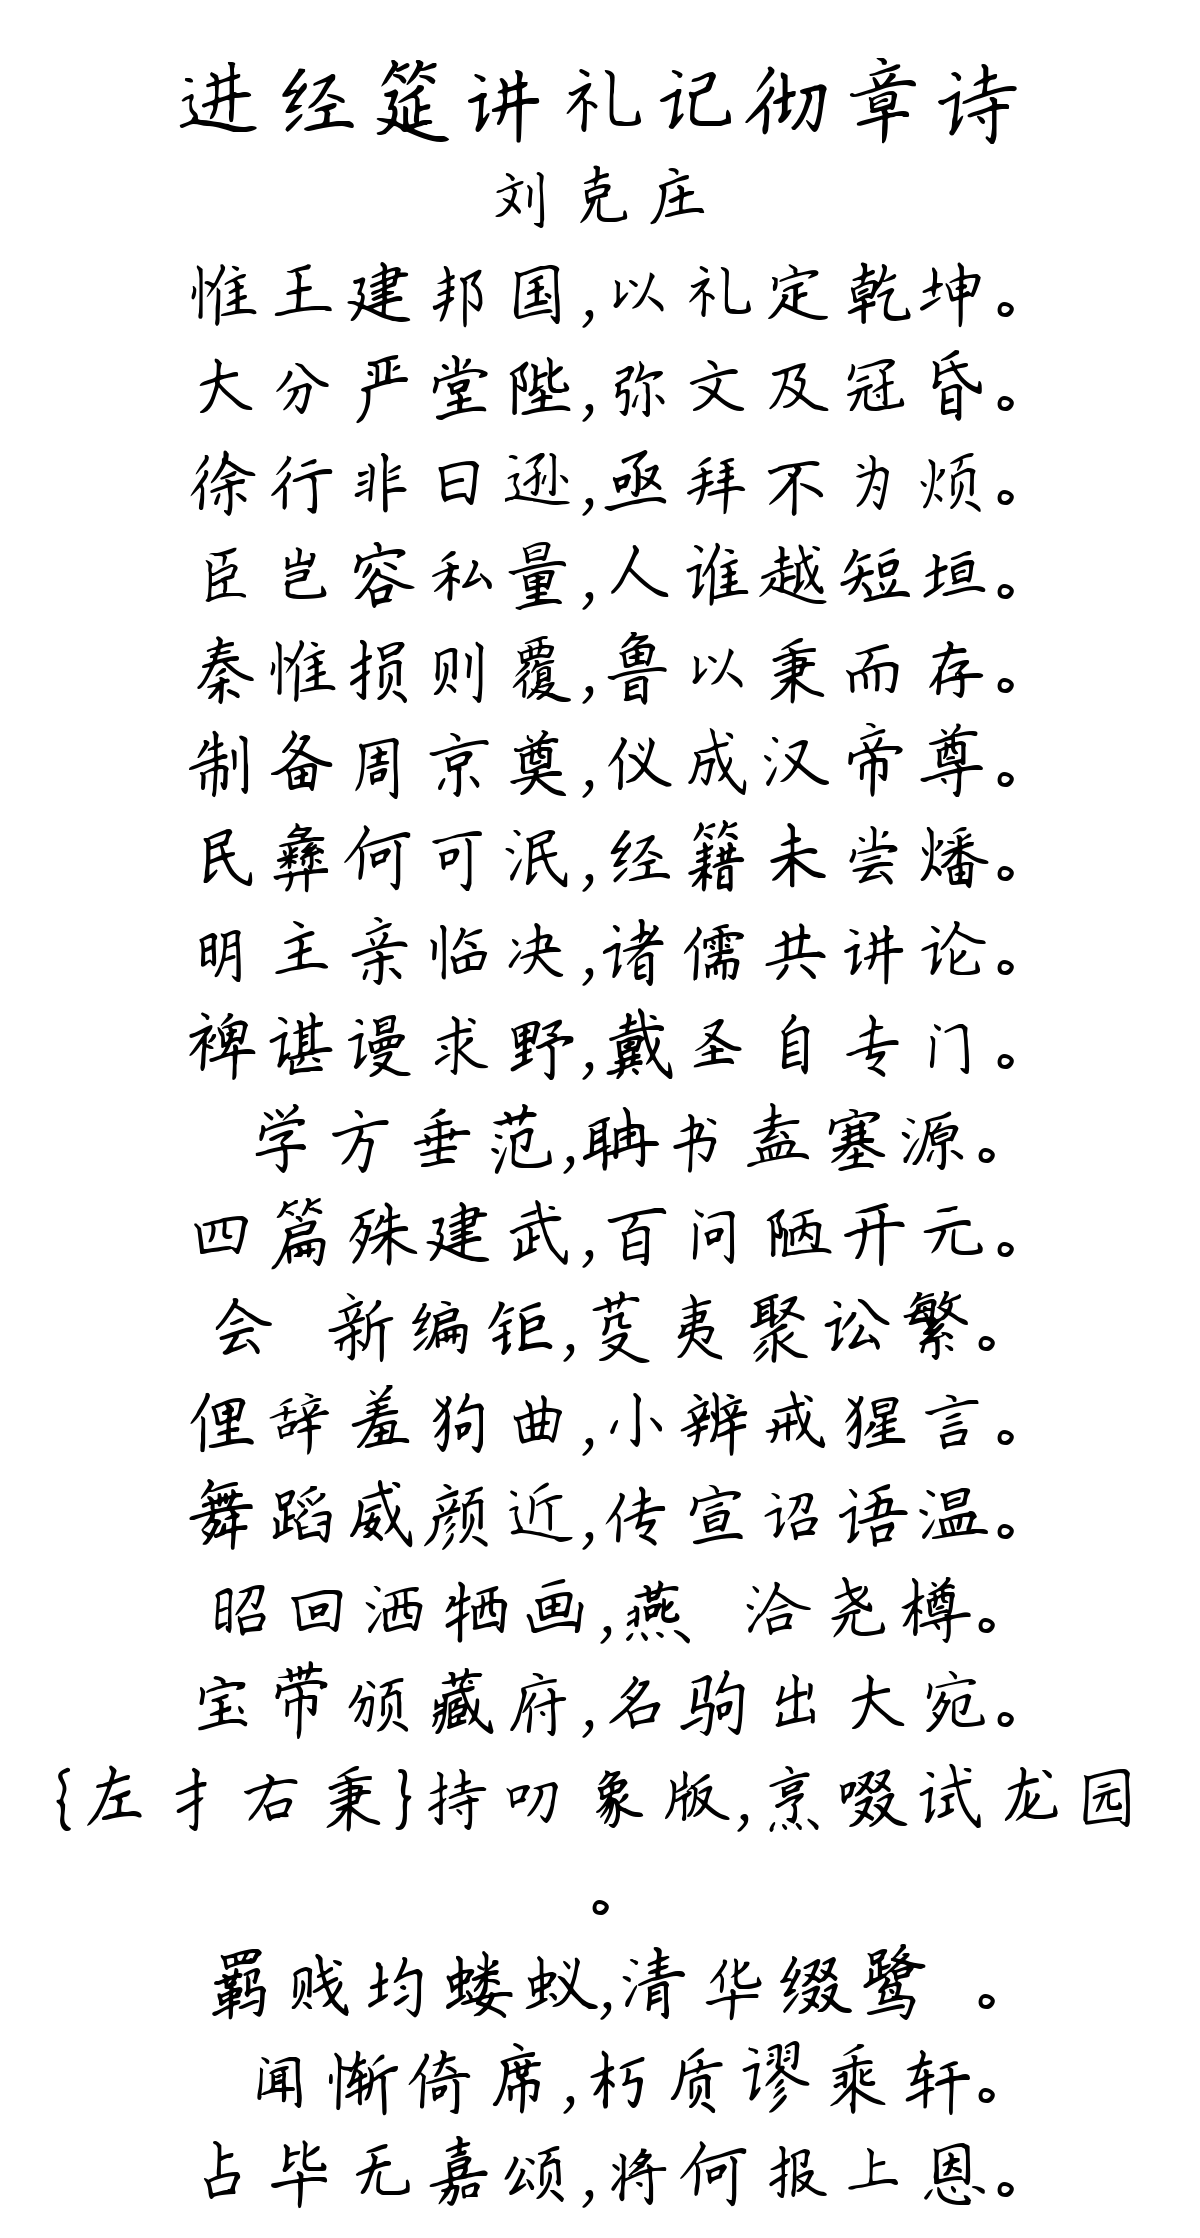 进经筵讲礼记彻章诗
刘克庄
惟王建邦国,以礼定乾坤。
大分严堂陛,弥文及冠昏。
徐行非曰逊,亟拜不为烦。
臣岂容私量,人谁越短垣。
秦惟损则覆,鲁以秉而存。
制备周京奠,仪成汉帝尊。
民彝何可泯,经籍未尝燔。
明主亲临决,诸儒共讲论。
裨谌谩求野,戴圣自专门。
学方垂范,聃书盍塞源。
四篇殊建武,百问陋开元。
会 新编钜,芟夷聚讼繁。
俚辞羞狗曲,小辨戒猩言。
舞蹈威颜近,传宣诏语温。
昭回洒牺画,燕 洽尧樽。
宝带颁藏府,名驹出大宛。
{左扌右秉}持叨象版,烹啜试龙园
。
羁贱均蝼蚁,清华缀鹭 。
闻惭倚席,朽质谬乘轩。
占毕无嘉颂,将何报上恩。